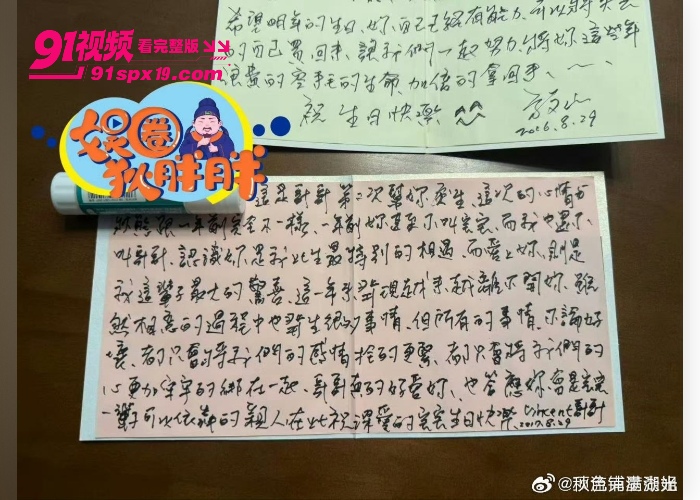 希望明年的生日，妳自己已經有能力可以將失去
的自己買回來，讓我們一起努力將妳這些年
浪費的寶貴的生命加倍的拿回來
祝 生日快樂
2016.8.29
91视频 看完整版
91spx19.com
娱圈
狐胖胖
這是哥哥第二次幫妳慶生，這次的心情與
狀態跟一年前完全不一樣，一年前妳還不叫宏宏，而我也還不
叫哥哥，認識妳是我此生最特別的相遇，而愛上妳，則是
我這輩子最大的驚喜，這一年來到現在我越來越離不開妳，雖
然相處的過程中也發生很多事情，但所有的事情，不論好
壞，都只會將我們的感情拴的更緊，都只會將我們的
心更加牢牢的綁在一起，哥哥真的好愛妳，也答應妳會是
一輩子可以依靠的親人在此祝 親愛的 生日快樂 Vincent哥哥
2017.8.29